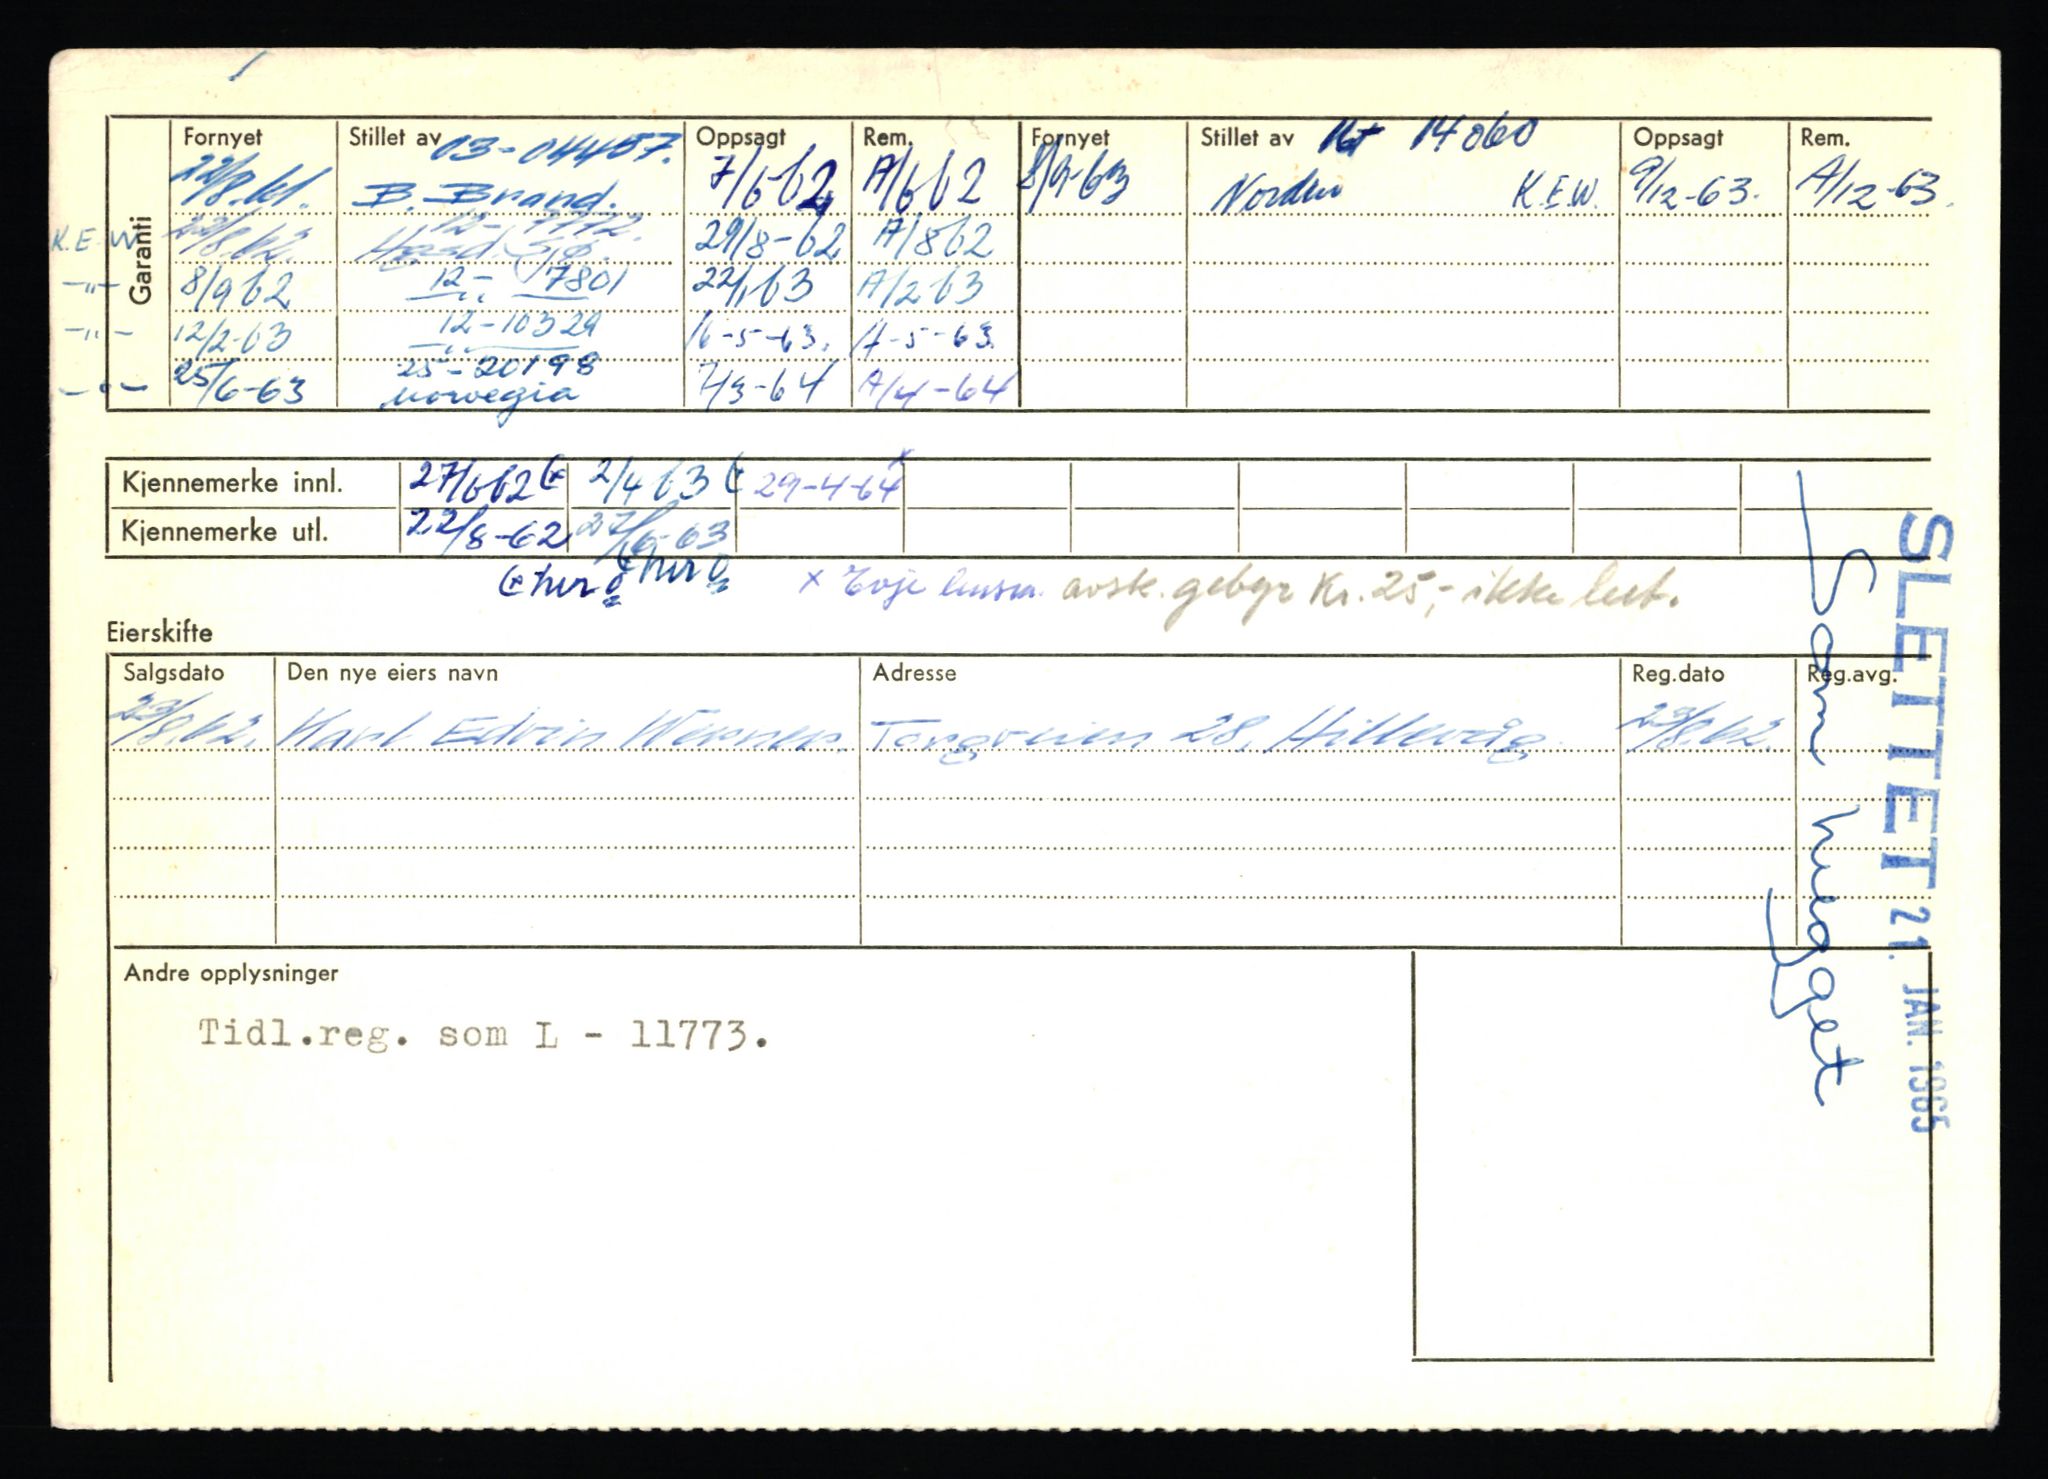 Fornyet Stillet av 03-04457. Oppsagt Rem. Fornyet Stillet av 14060 Oppsagt Rem.
22/8.61. B. Brand. 7/6 62 A/6 62 8/9-63 Norden K.E.W. 9/12-63. A/12-63.
Garanti
K.E.W. 23/8.62. 12-7772. 29/8-62 A/8 62
-"- 8/9 62 12- 7801 22/1 63 A/2 63
-"- 12/2-63 12-10329 16-5-63. A-5-63.
-"- 25/6-63 25-20198 7/3-64 A/4-64
Norwegia
Kjennemerke innl. 27/6 62 2/4 63 29-4-64 x
Kjennemerke utl. 22/8-62 27/6-63
x Evje avsk. gebyr Kr. 25,- ikke
Eierskifte
Salgsdato Den nye eiers navn Adresse Reg.dato Reg.avg.
23/8.62. Karl Edvin Werner. Torgveien 28, Hillevåg. 23/8.62.
Andre opplysninger
Tidl.reg. som L - 11773.
Som hugget
SLETTET 21. JAN. 1965